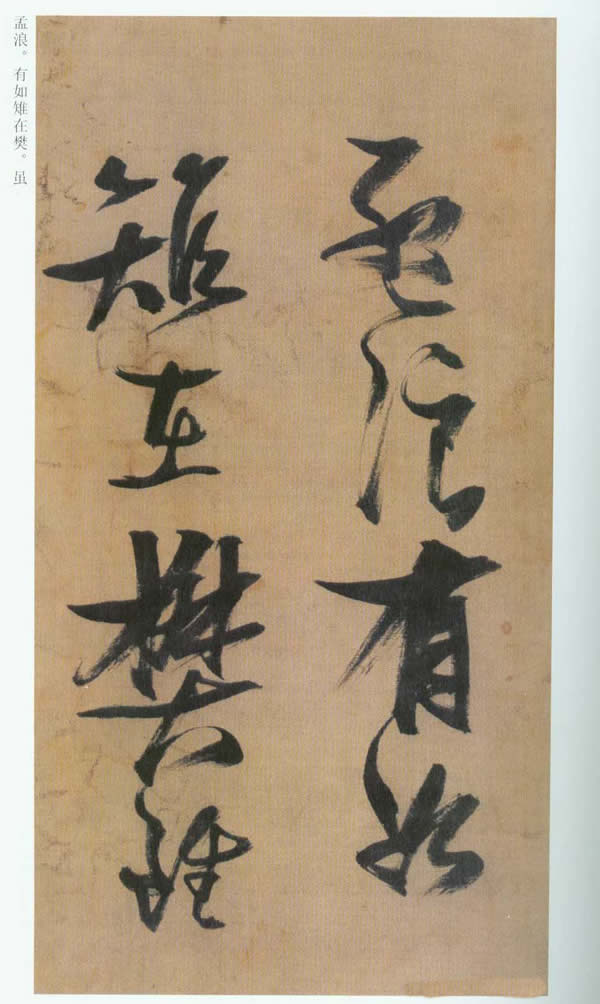 孟浪有如
雉在樊雖
孟浪。有如雉在樊。虽